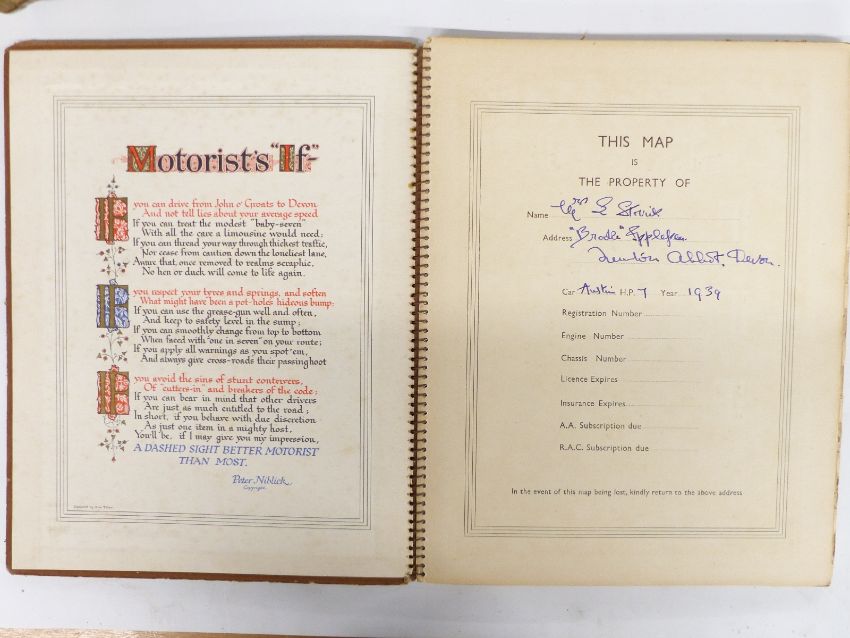 Motorist's "If"
If you can drive from John o' Groats to Devon
And not tell lies about your average speed
If you can treat the modest "baby-seven"
With all the care a limousine would need;
If you can thread your way through thickest traffic,
Nor cease from caution down the loneliest lane,
Aware that once removed to realms seraphic,
No hen or duck will come to life again.
If you respect your tyres and springs, and soften
What might have been a pot-hole's hideous bump:
If you can use the grease-gun well and often,
And keep to safety level in the sump;
If you can smoothly change from top to bottom
When faced with "one in seven" on your route;
If you apply all warnings as you spot 'em,
And always give cross-roads their passing hoot
If you avoid the sins of stunt contrivers,
Of "cutters-in" and breakers of the code;
If you can bear in mind that other drivers
Are just as much entitled to the road;
In short, if you behave with due discretion
As just one item in a mighty host,
You'll be, if I may give you my impression,
A DASHED SIGHT BETTER MOTORIST
THAN MOST.
Peter Niblick
Copyright
THIS MAP
IS
THE PROPERTY OF
Name Mrs E
Address "Bradle"
Newton Abbot, Devon.
Car Austin H.P. 7 Year 1939
Registration Number
Engine Number
Chassis Number
Licence Expires
Insurance Expires
A.A. Subscription due
R.A.C. Subscription due
In the event of this map being lost, kindly return to the above address